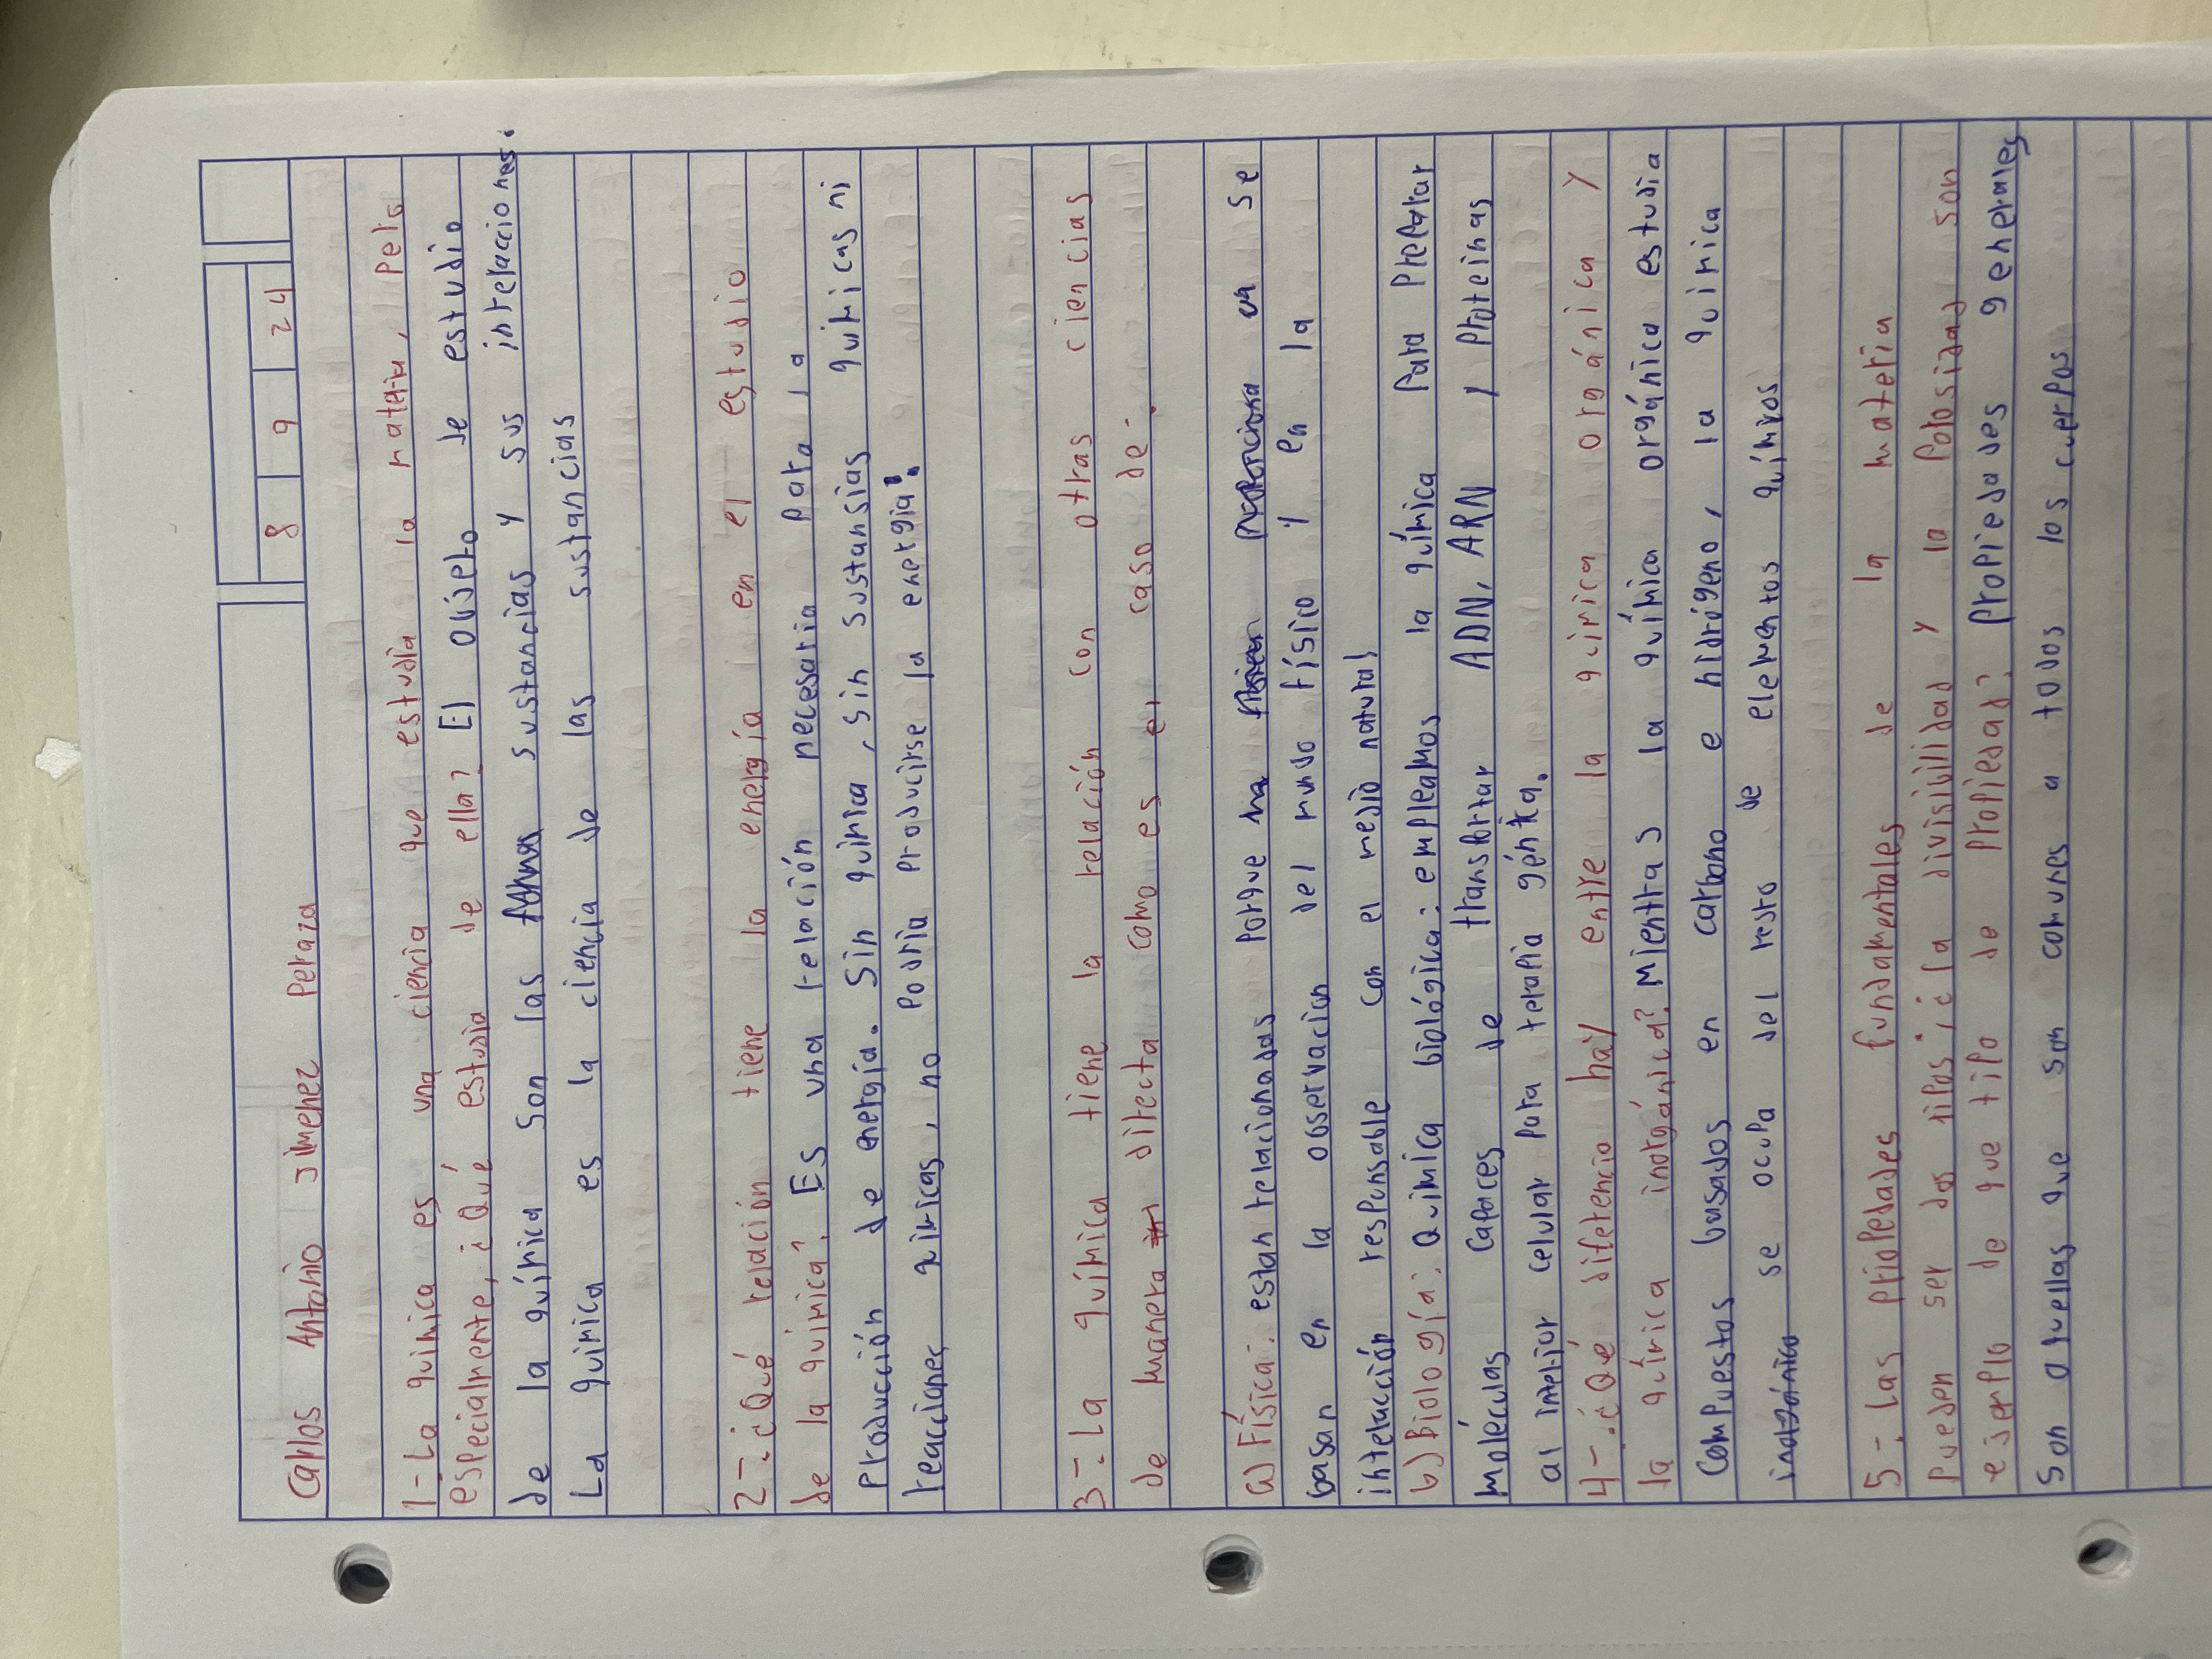 8 9 24
Carlos Antonio Jimenez Peraza
1-La química es una ciencia que estudia la materia, Pero
especialmente, ¿Qué estudia de ella? El objeto de estudio
de la química son las sustancias y sus interelaciones.
La química es la ciencia de las sustancias
2-¿Qué relación tiene la energía en el estudio
de la química? Es una relación necesaria para la
Producción de energía. Sin química, sin sustansias químicas ni
reacciones químicas, no podria producirse la energia.
3-La química tiene la relación con otras ciencias
de manera directa como es el caso de:
a) Física: estan relacionadas Porque se
basan en la observacion del mundo físico y en la
intelacción responsable con el medio natural
b) Biología: Química biológica: empleamos la química Para Preparar
moléculas capaces de transportar ADN, ARN y Proteínas
al interior celular para terapia génica.
4-¿Qué diferencia hay entre la química orgánica y
la química inorgánica? Mientras la química orgánica estudia
compuestos basados en carbono e hidrógeno, la química
se ocupa del resto de elementos químicos
5-Las propiedades fundamentales de la materia
pueden ser dos tipos; ¿la divisibilidad y la porosidad son
ejemplo de que tipo de propiedad? propiedades generales
son aquellas que son comunes a todos los cuerpos